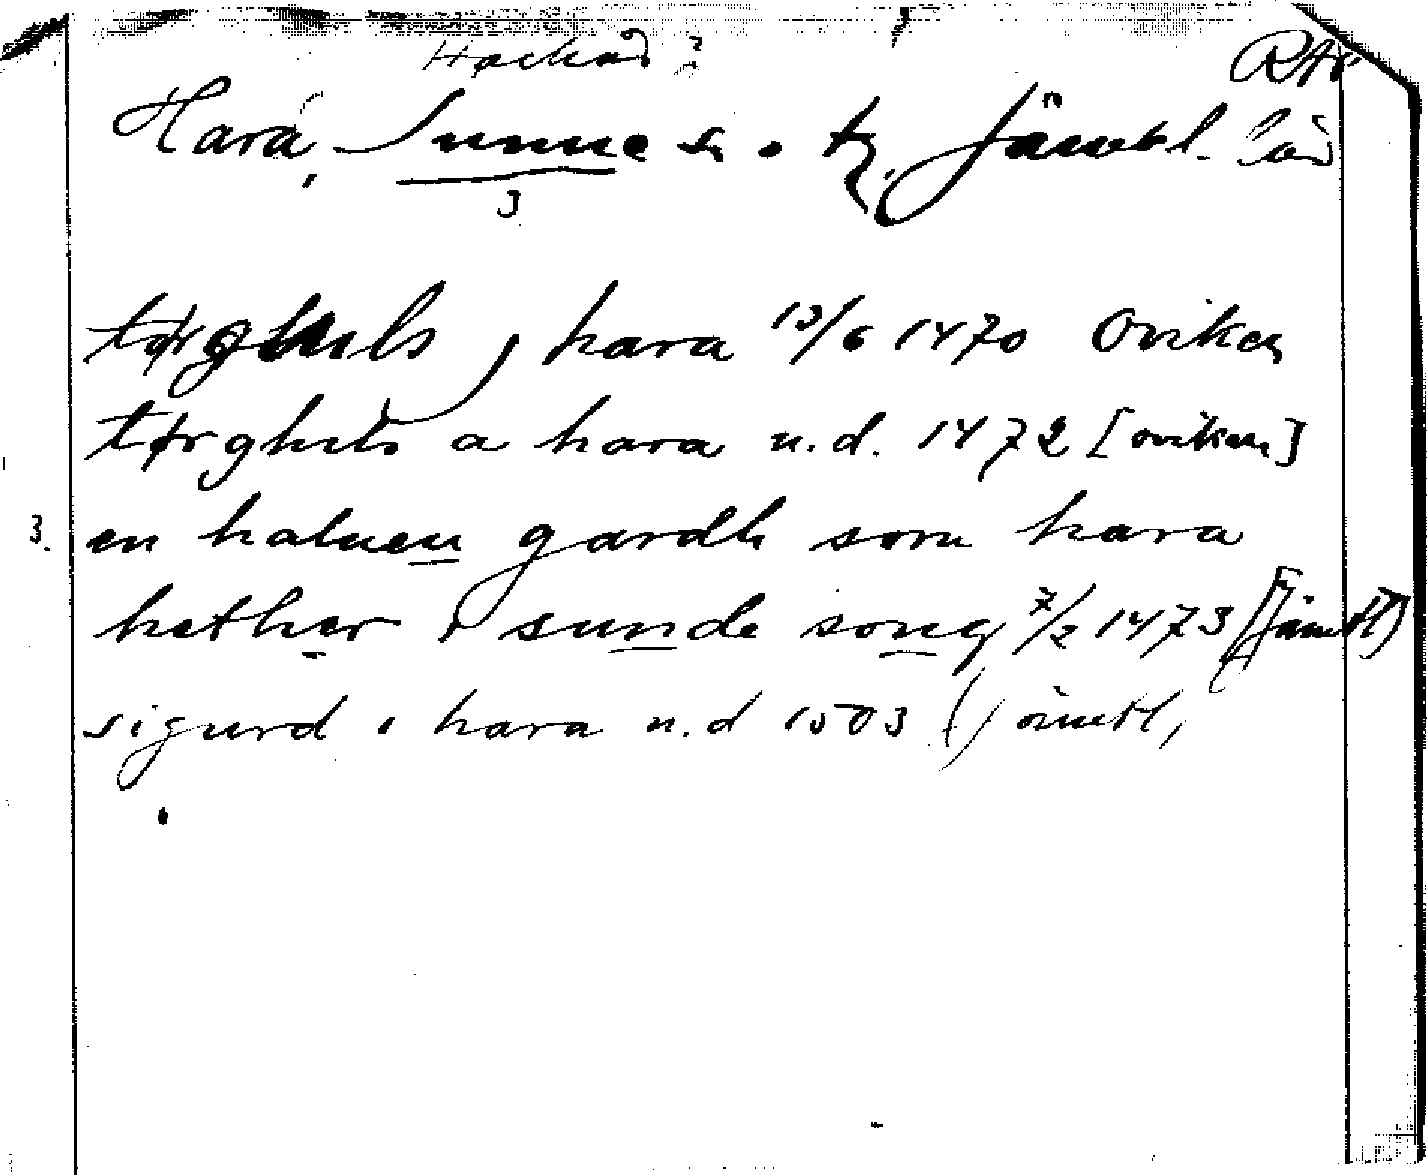 Hackås ?
RAÖ
Hara, Sunne sn. o. tg. Jämtl. län
3
tørghuls j hara 13/6 1470 Oviken
tørghils a hara u.d. 1472 [oviken]
3. en haluen gardh som hara
hether i sunde song 7/2 1473 (Jämtl)
sigurd i hara u.d 1503 (Jämtl,